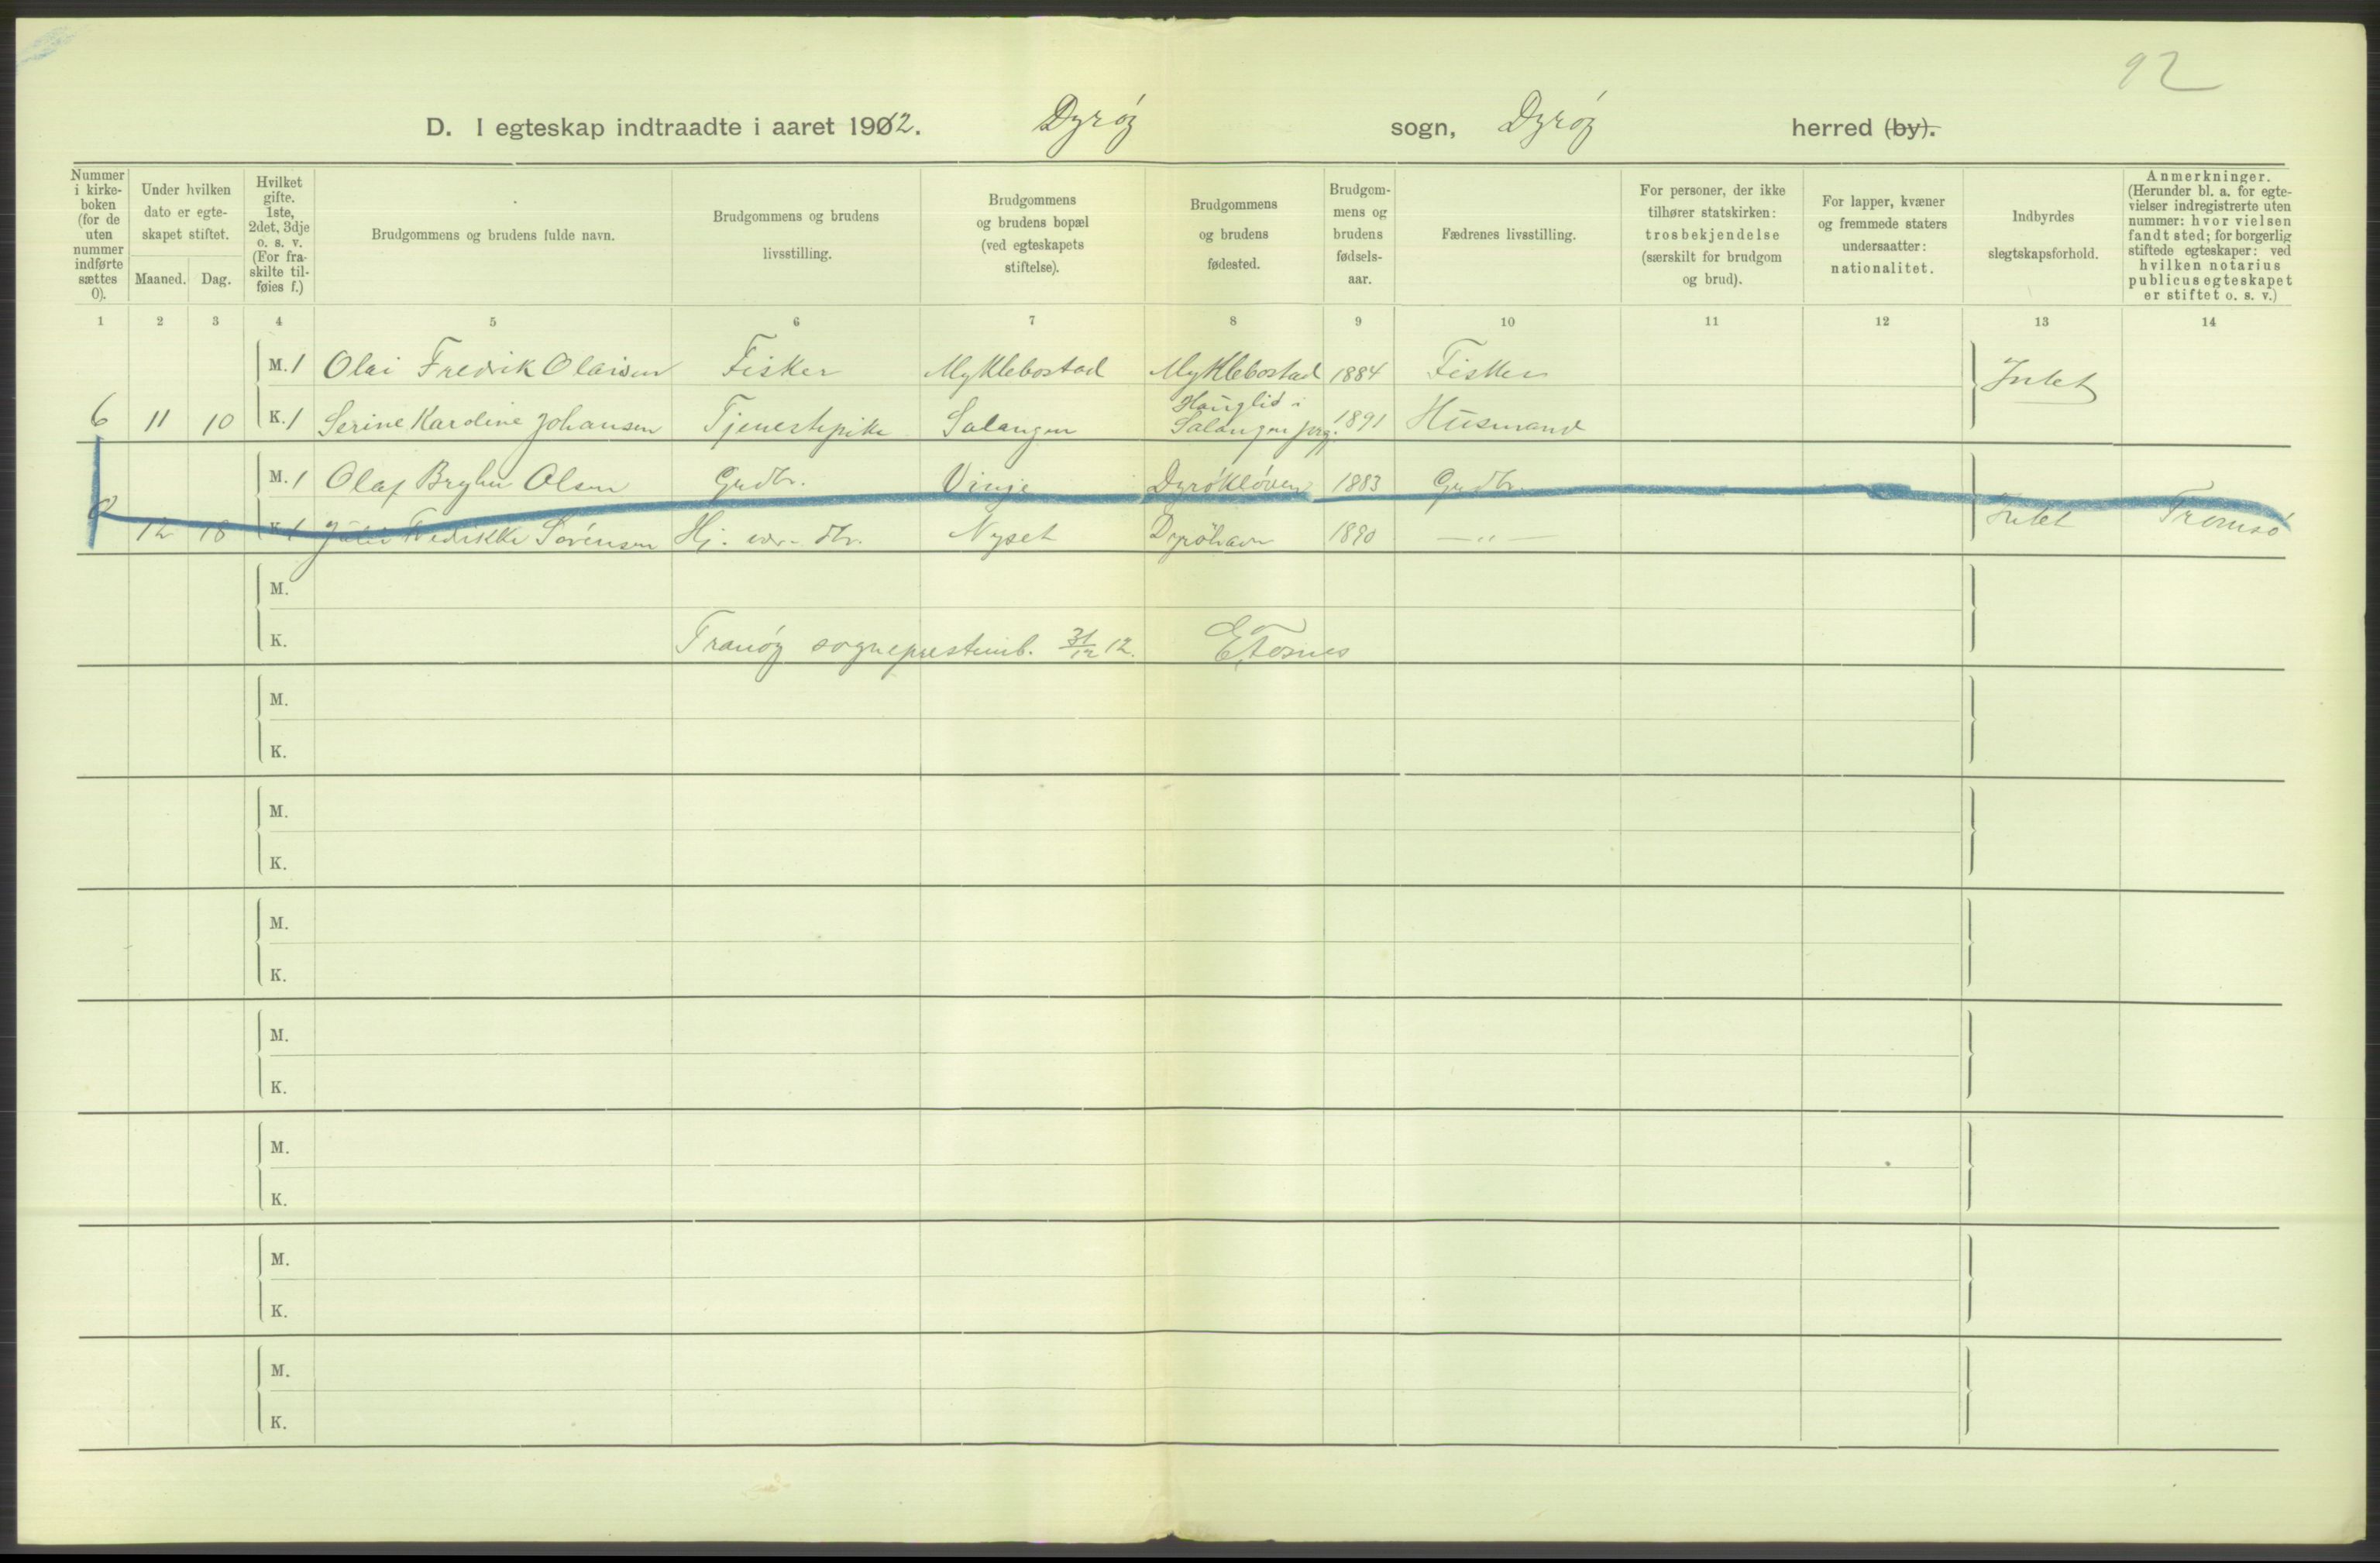 92
D. I egteskap indtraadte i aaret 1912. Dyrøy sogn, Dyrøy herred (by).
Nummer i kirke-boken (for de uten nummer indførte sættes 0).
Under hvilken dato er egte-skapet stiftet.
Maaned. Dag.
Hvilket gifte. 1ste, 2det, 3dje o. s. v. (For fra-skilte til-føies f.)
Brudgommens og brudens fulde navn.
Brudgommens og brudens livsstilling.
Brudgommens og brudens bopæl (ved egteskapets stiftelse).
Brudgommens og brudens fødested.
Brudgom-mens og brudens fødsels-aar.
Fædrenes livsstilling.
For personer, der ikke tilhører statskirken: trosbekjendelse (særskilt for brudgom og brud).
For lapper, kvæner og fremmede staters undersaatter: nationalitet.
Indbyrdes slegtskapsforhold.
Anmerkninger. (Herunder bl. a. for egte-vielser indregistrerte uten nummer: hvor vielsen fandt sted; for borgerlig stiftede egteskaper: ved hvilken notarius publicus egteskapet er stiftet o. s. v.)
1 2 3 4 5 6 7 8 9 10 11 12 13 14
M. 1 Olai Fredrik Olaisen Fisker Myklebostad Myklebostad 1884 Fisker Intet
6 11 10 K. 1 Serine Karoline Johansen Tjenestepike Salangen Hauglid i Salangen prg. 1891 Husmand
M. 1 Olaf Bryhn Olsen Grdbr. Vinje Dyrökløven 1883 Grdbr.
0 12 18 K. 1 Julie Fredrikke Sørensen Hj. v. Nyset Dyröhavn 1890 —〃— Intet Tromsø
M.
K. Tranøy sogneprestemb. 31/12 12. E. Tosnes
M.
K.
M.
K.
M.
K.
M.
K.
M.
K.
M.
K.
M.
K.